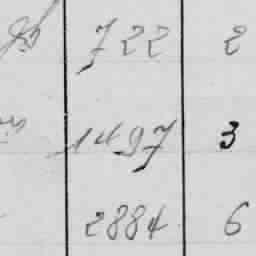 722 2
1497 3
2884 6